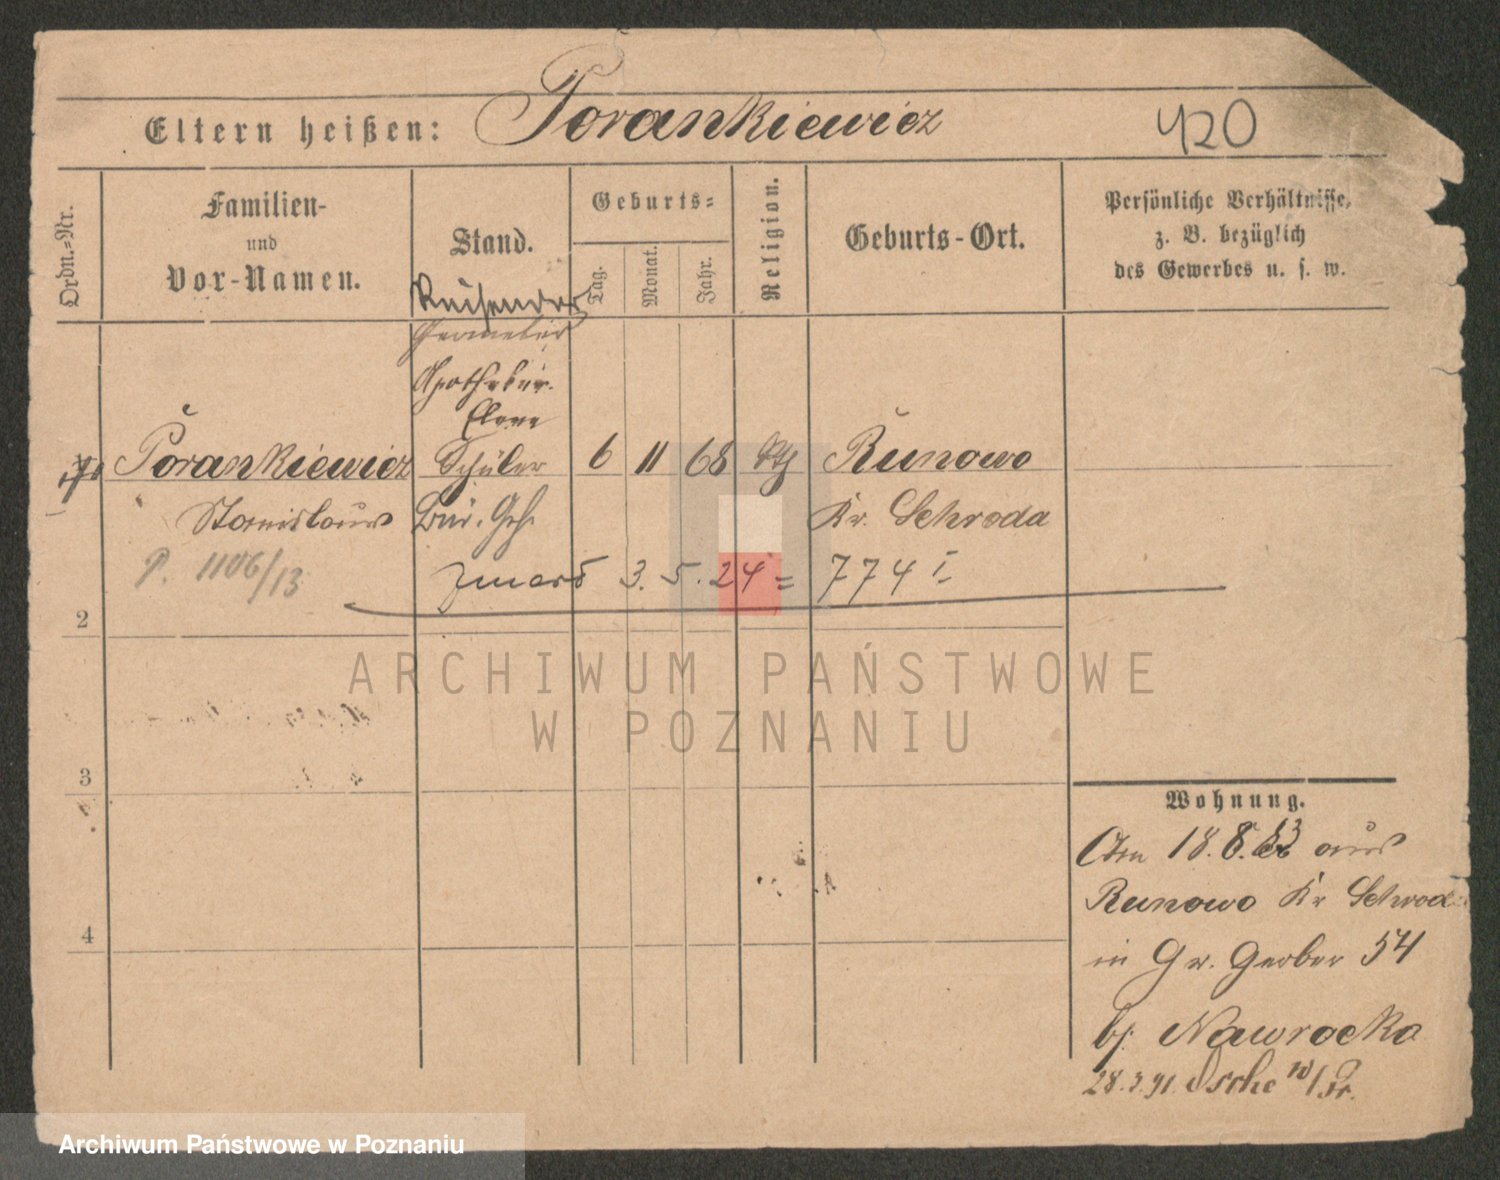 Eltern heißen: Porankiewicz 420
Ordn.-Nr.
Familien-
und
Vor-Namen.
Stand.
Geburts-
Tag.
Monat.
Jahr.
Religion.
Geburts-Ort.
Persönliche Verhältnisse,
z. B. bezüglich
des Gewerbes u. s. w.
Reisender
Apotheker
Eleve
Porankiewicz Schüler 6 11 68 Kth Runowo
Stanislaus Bür. Geh. Kr. Schroda
P. 1106/13 zmarł 3. 5. 24 = 774 I
2
3
4
ARCHIWUM PAŃSTWOWE
W POZNANIU
Wohnung.
Am 18. 8. 83 aus
Runowo Kr Schroda
in Gr. Gerber 54
bj. Nawrocka
28.3.91.
Archiwum Państwowe w Poznaniu